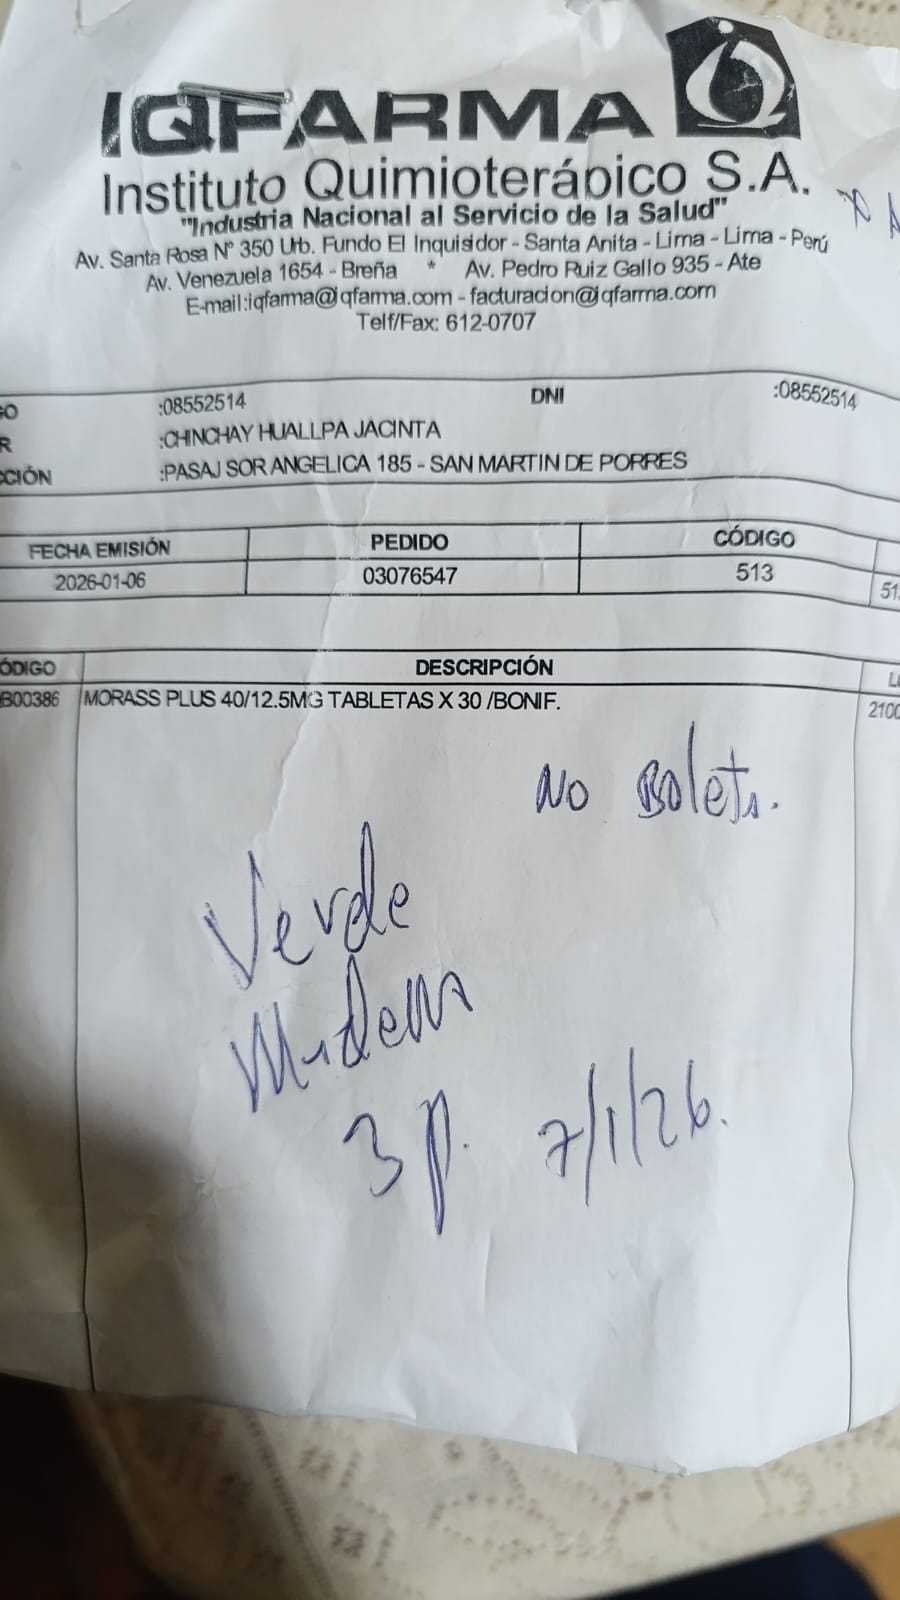 IQFARMA
Instituto Quimioterápico S.A.
"Industria Nacional al Servicio de la Salud"
Av. Santa Rosa N° 350 Urb. Fundo El Inquisidor - Santa Anita - Lima - Lima - Perú
Av. Venezuela 1654 - Breña * Av. Pedro Ruiz Gallo 935 - Ate
E-mail:iqfarma@iqfarma.com - facturacion@iqfarma.com
Telf/Fax: 612-0707
GO :08552514 DNI :08552514
R :CHINCHAY HUALLPA JACINTA
CCIÓN :PASAJ SOR ANGELICA 185 - SAN MARTIN DE PORRES
FECHA EMISIÓN PEDIDO CÓDIGO
2026-01-06 03076547 513 51
ÓDIGO DESCRIPCIÓN L
B00386 MORASS PLUS 40/12.5MG TABLETAS X 30 /BONIF. 2100
No Boleta.
Verde
3 p. 7/1/26.